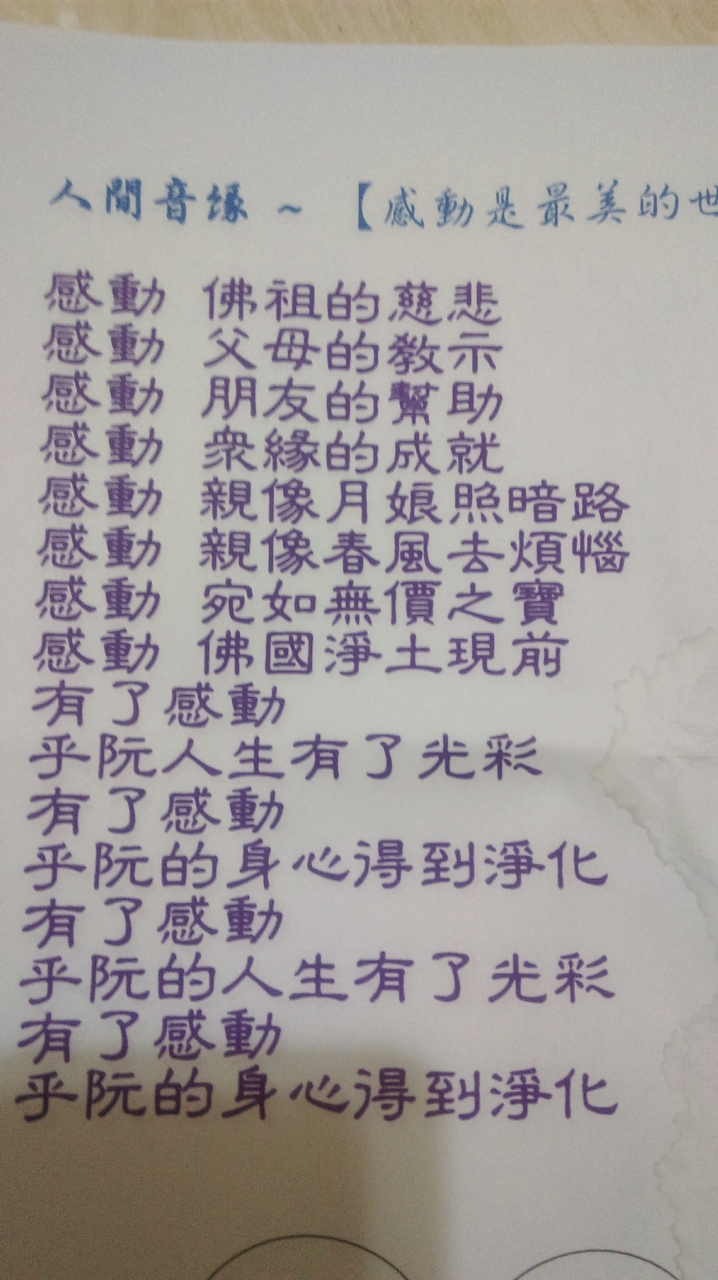 人間音緣 ~ 【感動是最美的世
感動 佛祖的慈悲
感動 父母的教示
感動 朋友的幫助
感動 眾緣的成就
感動 親像月娘照暗路
感動 親像春風去煩惱
感動 宛如無價之寶
感動 佛國淨土現前
有了感動
乎阮人生有了光彩
有了感動
乎阮的身心得到淨化
有了感動
乎阮的人生有了光彩
有了感動
乎阮的身心得到淨化